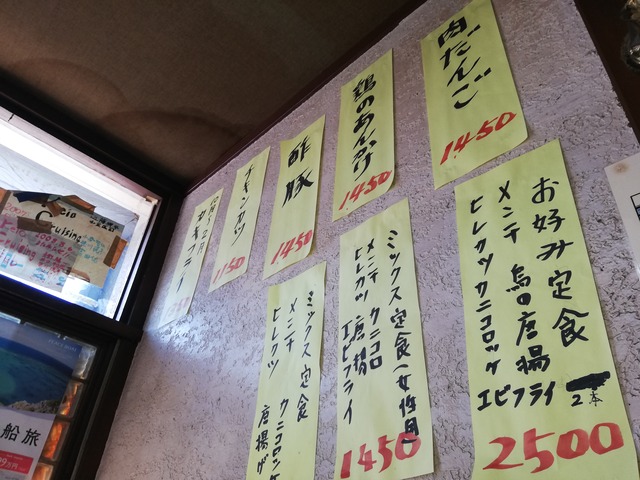 肉だんご
1450
鶏のあんかけ
1450
酢豚
1450
チキンカツ
1150
カキフライ
お好み定食
メンチ 鳥の唐揚
ヒレカツ カニコロッケ
エビフライ 2本
2500
ミックス定食(女性用)
メンチ カニコロ
ヒレカツ 唐揚
エビフライ
1450
ミックス定食
メンチ カニコロッケ
ヒレカツ 唐揚げ
Cruising
船旅